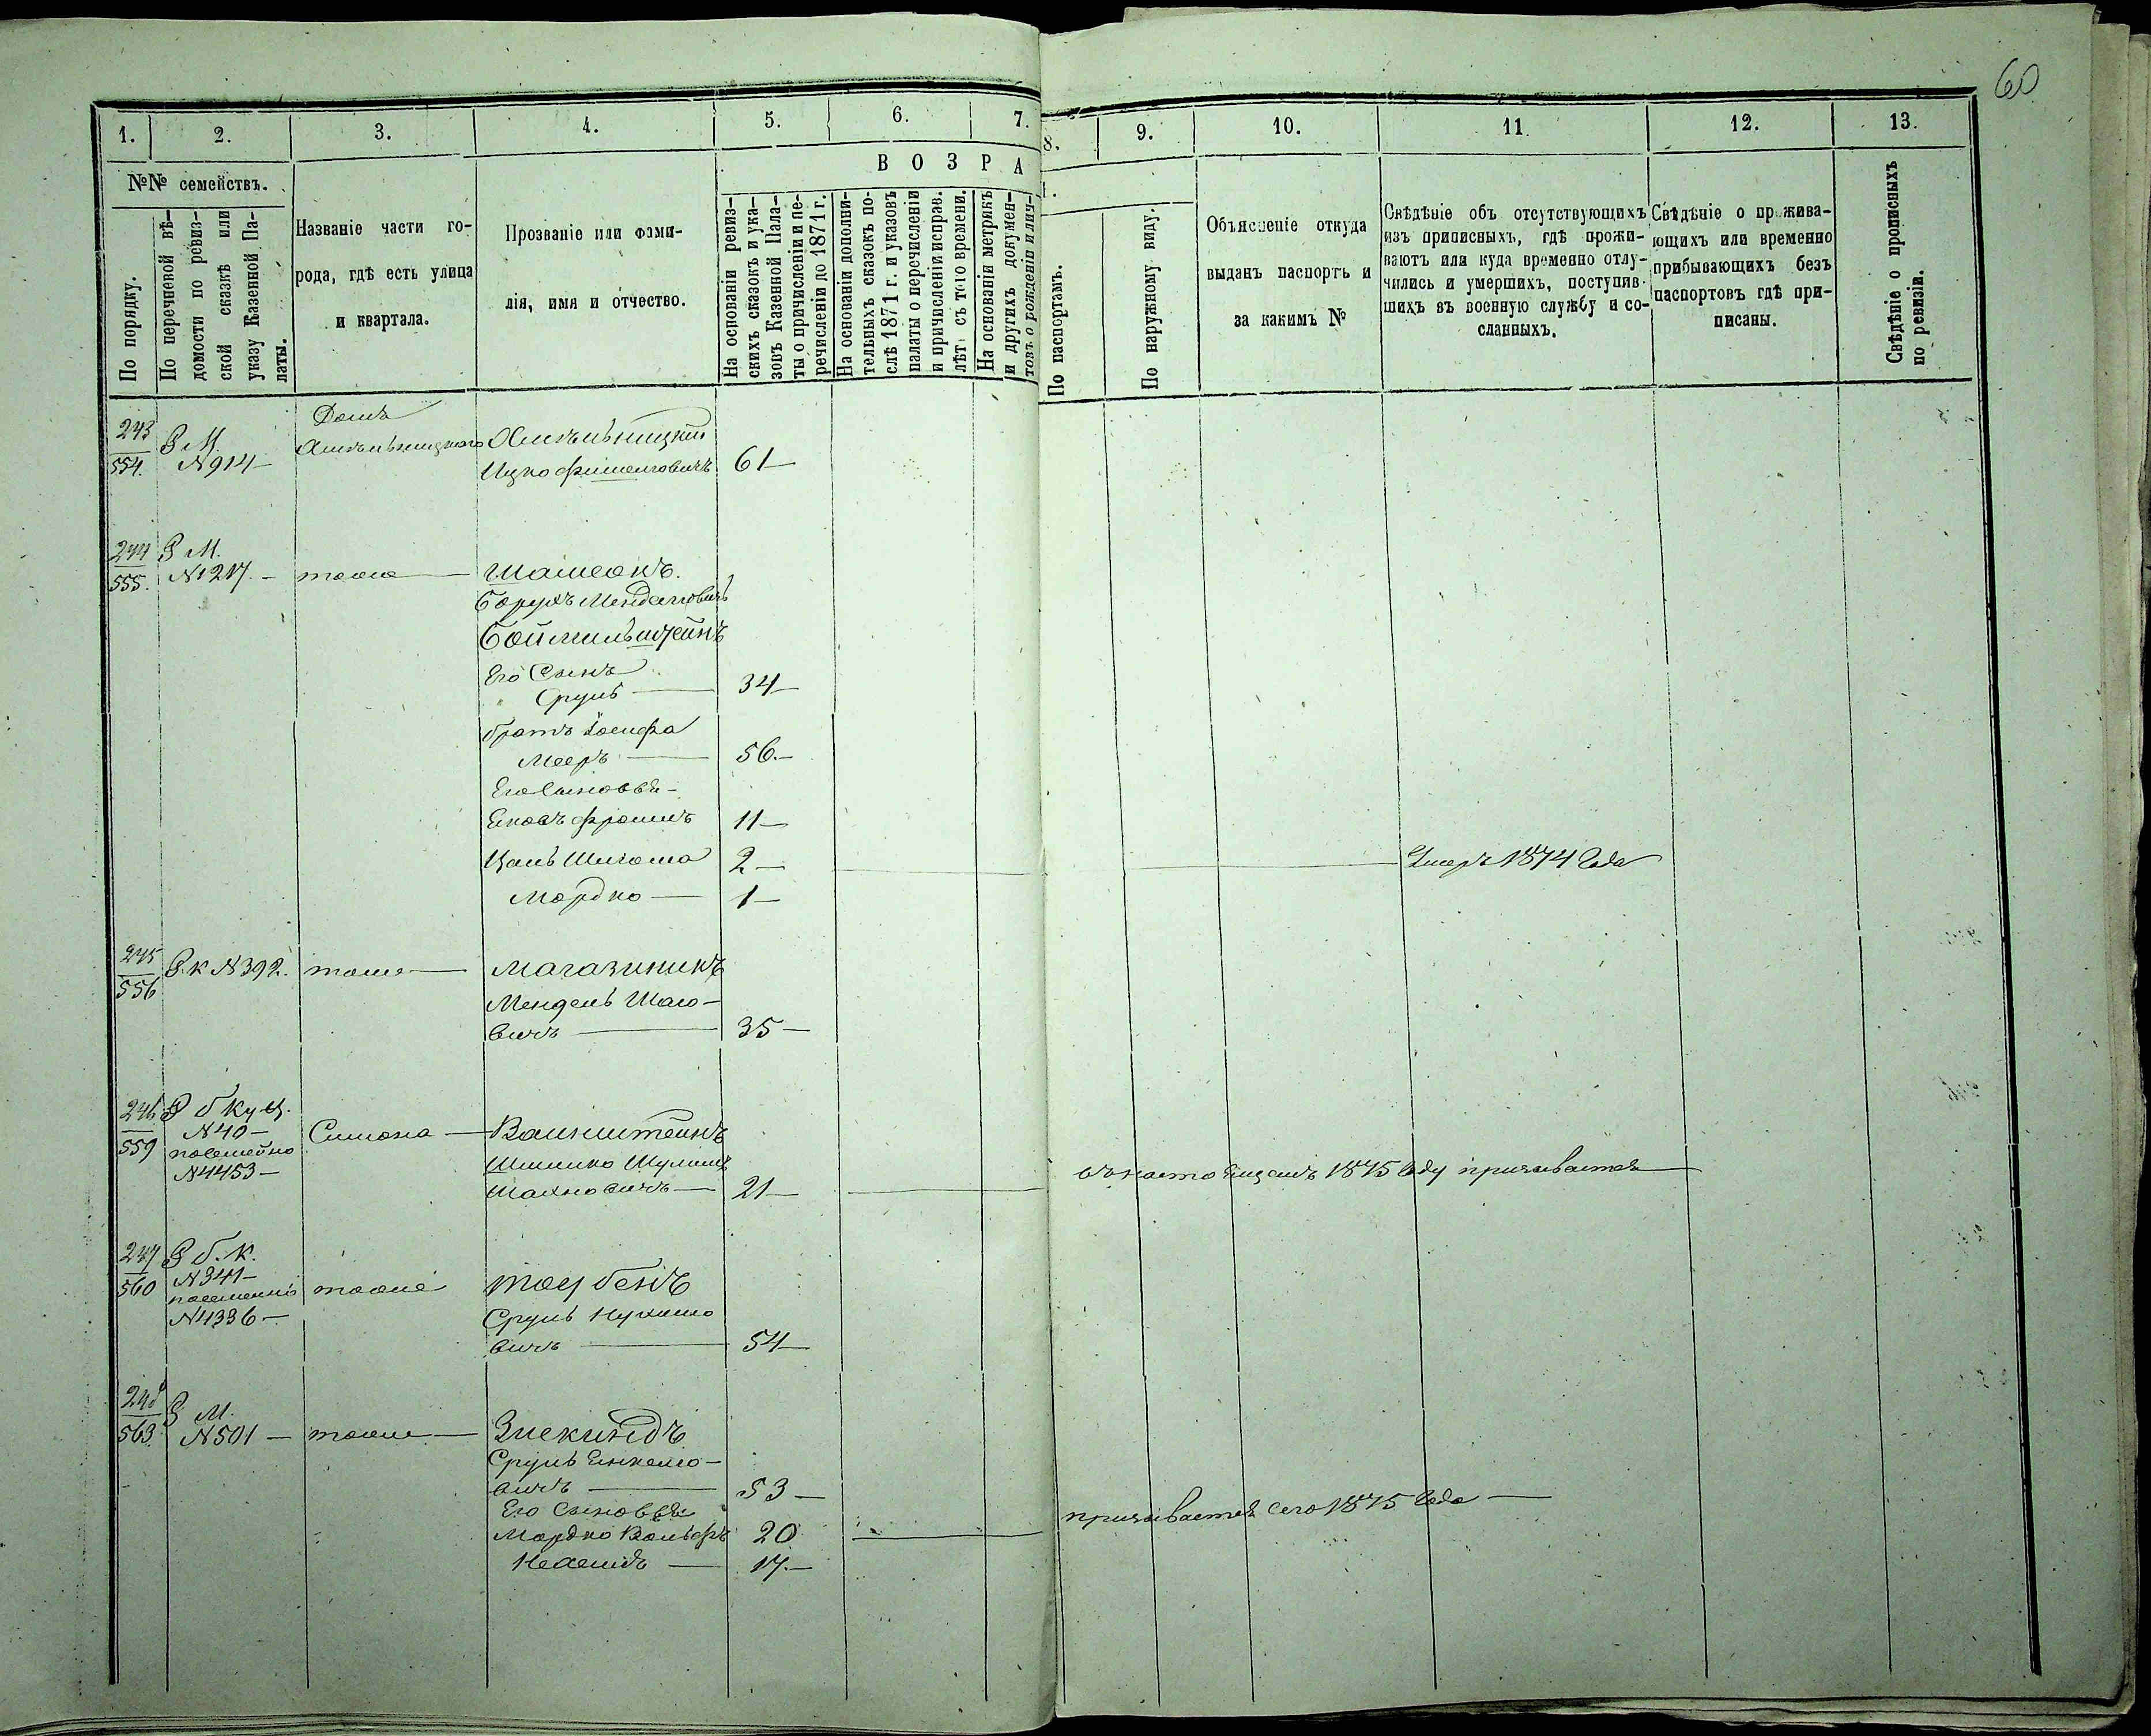 60
1. 2. 3. 4. 5. 6. 7. 8. 9. 10. 11. 12. 13.
№№ семействъ.
По порядку.
По перечневой вѣ-
домости по ревиз-
ской сказкѣ или
указу Казенной Па-
латы.
Названіе части го-
рода, гдѣ есть улица
и квартала.
Прозваніе или фами-
лія, имя и отчество.
ВОЗРА
На основаніи ревиз-
скихъ сказокъ и ука-
зовъ Казенной Пала-
ты о причисленіи и пе-
речисленіи до 1871 г.
На основаніи дополни-
тельныхъ сказокъ по-
слѣ 1871 г. и указовъ
палаты о перечисленіи
и причисленіи исправ.
лѣт съ того времени.
На основаніи метрикъ
и другихъ докумен-
товъ о рожденіи и лич-
По паспортамъ.
По наружному виду.
Объясненіе откуда
выданъ паспортъ и
за какимъ №
Свѣдѣніе объ отсутствующихъ
изъ приписныхъ, гдѣ прожи-
ваютъ или куда временно отлу-
чились и умершихъ, поступив-
шихъ въ военную службу и со-
сланныхъ.
Свѣдѣніе о прожива-
ющихъ или временно
прибывающихъ безъ
паспортовъ гдѣ при-
писаны.
Свѣдѣніе о прописныхъ
по ревизіи.
Домъ
243 Р М. Хмѣльницкаго Хмѣльницкій
554. N 914 Ицко Фишелговичъ 61
244 Р М.
555. N 1217. тоже Шамсонъ.
Борухъ Менделговичъ
Боймильштейнъ
Его Сынъ
Сруль 34
братъ Іосифа
Мееръ 56.
Его Сыновья
Енохъ Фроимъ 11
Цаль Шлгома 2 Умеръ 1874 Года
Мордко 1
245 Р. к N 392. тоже Магазиникъ
556 Мендель Шаго-
вичъ 35
246 Р б Куп.
559 N 40 Симона Ваинштеинъ
посемейно Шмилко Шулимъ
N 4453 Шахновичъ 21 въ настоящемъ 1875 Году призывается
247 Р б. к.
560 N 341 тоже Таубенъ
посемейно Сруль Нухимо
N 4336 вичъ 54
248 Р М.
563. N 501 тоже Зискиндъ
Сруль Енкелго-
вичъ 53
Его Сыновья
Мордко Вольфъ 20 призывается сего 1875 Года
Нехемія 17.